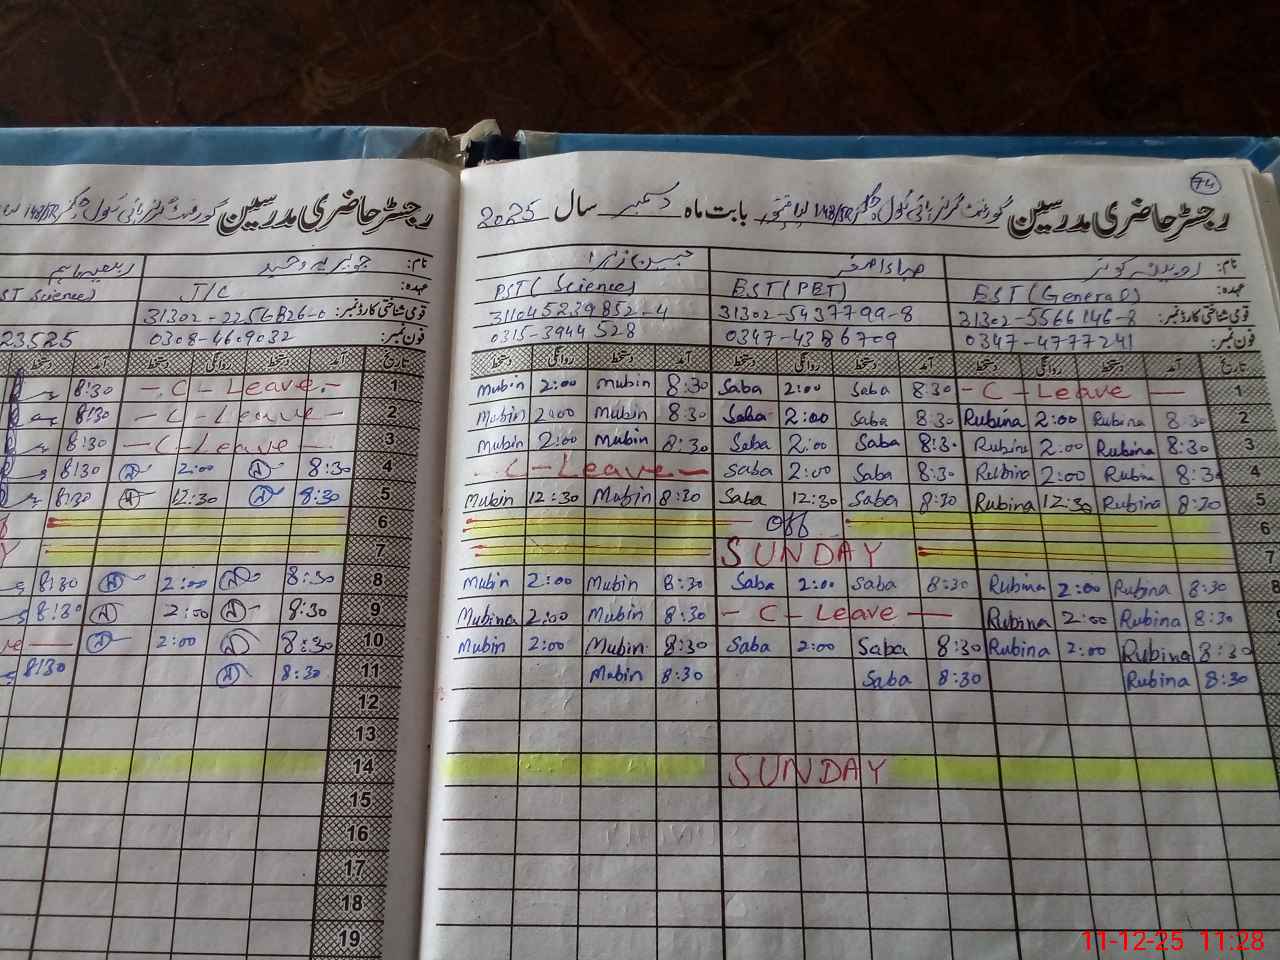 74
رجسٹر حاضری مدرسین گورنمنٹ گرلز ہائی سکول چک 148/5R بابت ماہ دسمبر سال 2025
نام: روبینہ کوثر صباء اصغر
عہدہ: EST (General) EST (PBT) PST (Science)
قومی شناختی کارڈ نمبر: 31302-5566146-8 31302-5437799-8 31104 5239852-4
فون نمبر: 0347-4777241 0347-4386709 0315-3944528
تاریخ آمد دستخط روانگی دستخط آمد دستخط روانگی دستخط آمد دستخط روانگی دستخط
Mubin 2:00 Mubin 8:30 Saba 2:00 Saba 8:30 - C - Leave - 1
Mubin 2:00 Mubin 8:30 Saba 2:00 Saba 8:30 Rubina 2:00 Rubina 8:30 2
Mubin 2:00 Mubin 8:30 Saba 2:00 Saba 8:3 Rubina 2:00 Rubina 8:30 3
- C - Leave - Saba 2:00 Saba 8:30 Rubina 2:00 Rubina 8:30 4
Mubin 12:30 Mubin 8:30 Saba 12:30 Saba 8:30 Rubina 12:30 Rubina 8:20 5
Off 6
SUNDAY 7
Mubin 2:00 Mubin 8:30 Saba 2:00 Saba 8:30 Rubina 2:00 Rubina 8:30 8
Mubina 2:00 Mubin 8:30 - C - Leave - Rubina 2:00 Rubina 8:30
Mubin 2:00 Mubin 8:30 Saba 2:00 Saba 8:30 Rubina 2:00 Rubina 8:30
Mubin 8:30 Saba 8:30 Rubina 8:30
SUNDAY
رجسٹر حاضری مدرسین گورنمنٹ گرلز ہائی سکول چک 148/5R
نام: جویریہ وحید
عہدہ: J/C ST Science)
قومی شناختی کارڈ نمبر: 31302-2256826-0
فون نمبر: 0308-4609032 23525
تاریخ آمد دستخط روانگی دستخط آمد دستخط
8:30 - C - Leave - 1
8:30 - C - Leave - 2
8:30 - C - Leave - 3
8:30 2:00 8:30 4
8:30 12:30 8:30 5
6
7
8:30 2:00 8:30 8
8:30 2:00 8:30 9
2:00 8:30 10
8:30 8:30 11
12
13
14
15
16
17
18
19
11-12-25 11:28